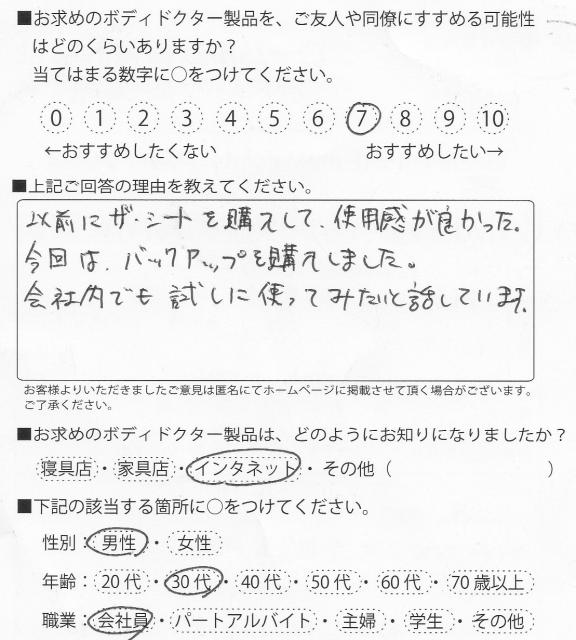 ■お求めのボディドクター製品を、ご友人や同僚にすすめる可能性
はどのくらいありますか？
当てはまる数字に○をつけてください。
0 1 2 3 4 5 6 7 8 9 10
←おすすめしたくない おすすめしたい→
■上記ご回答の理由を教えてください。
以前にザ・シートを購入して、使用感が良かった。
今回は、バックアップを購入しました。
会社内でも試しに使ってみたいと話しています。
お客様よりいただきましたご意見は匿名にてホームページに掲載させて頂く場合がございます。
ご了承ください。
■お求めのボディドクター製品は、どのようにお知りになりましたか？
寝具店・家具店・インタネット・その他（ ）
■下記の該当する箇所に○をつけてください。
性別：男性・女性
年齢：20代・30代・40代・50代・60代・70歳以上
職業：会社員・パートアルバイト・主婦・学生・その他